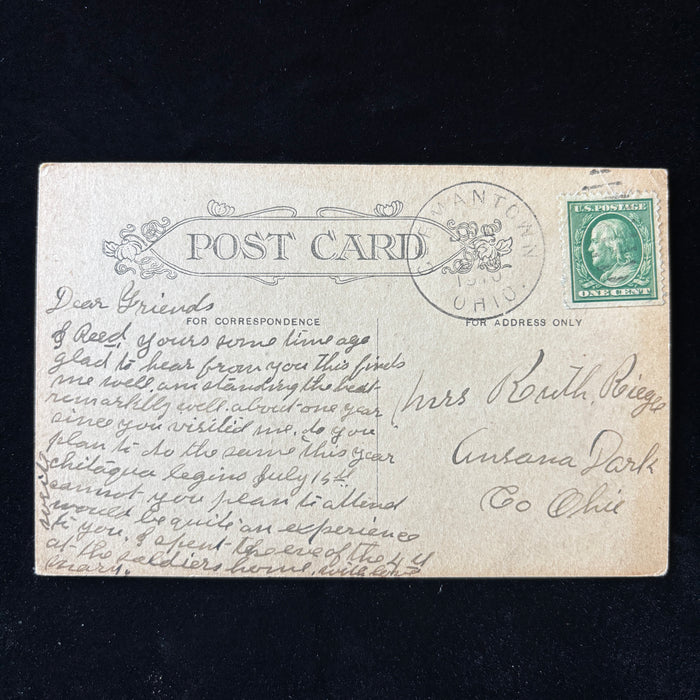 POST CARD
MANTOWN
1910
OHIO.
U.S. POSTAGE
ONE CENT
FOR CORRESPONDENCE
FOR ADDRESS ONLY
Dear Friends
I Reed, yours some time ago
glad to hear from you this finds
me well, am standing the heat
remarkilly well. about one year
since you visitid me. do you
plan to do the same this year
chitaqua begins July 15th
cannot you plan to attend
would be quite an experience
to you. I spent the eve of the 4th
at the soldiers home. with love
Mary.
write
Mrs Ruth. Riegle
Ansana Dark
Co Ohio